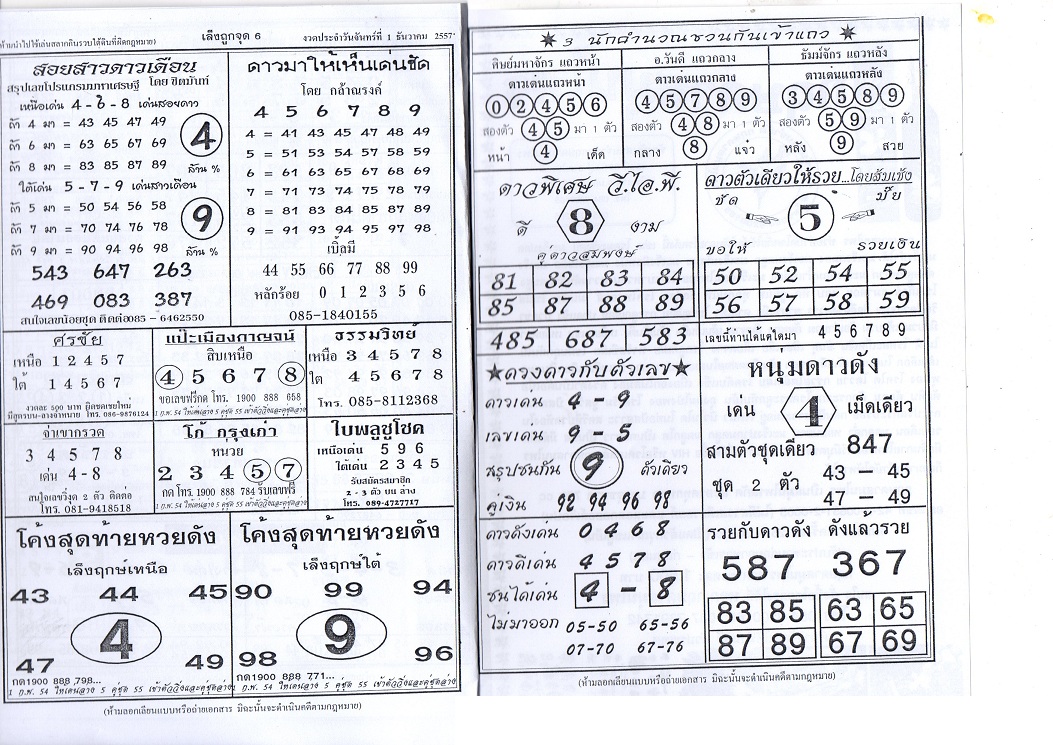 (ห้ามนำไปใช้เล่นสลากกินรวบใต้ดินที่ผิดกฎหมาย) เล็งถูกจุด 6 งวดประจำวันจันทร์ที่ 1 ธันวาคม 2557
สอยสาวดาวเดือน
สรุปเลขโปรแกรมมหาเศรษฐี โดย ชิตมันท์
เหนือเด่น 4 - 6 - 8 เด่นสอยดาว
ถ้า 4 มา = 43 45 47 49
ถ้า 6 มา = 63 65 67 69
ถ้า 8 มา = 83 85 87 89
4
ล้าน %
ใต้เด่น 5 - 7 - 9 เด่นสาวเดือน
ถ้า 5 มา = 50 54 56 58
ถ้า 7 มา = 70 74 76 78
ถ้า 9 มา = 90 94 96 98
9
ล้าน %
543 647 263
469 083 387
สนใจเลขน้อยชุด ติดต่อ085 - 6462550
ดาวมาให้เห็นเด่นชัด
โดย กล้าณรงค์
4 5 6 7 8 9
4 = 41 43 45 47 48 49
5 = 51 53 54 57 58 59
6 = 61 63 65 67 68 69
7 = 71 73 74 75 78 79
8 = 81 83 84 85 87 89
9 = 91 93 94 95 97 98
เบิ้ลมี
44 55 66 77 88 99
หลักร้อย 0 1 2 3 5 6
085-1840155
ศรชัย
เหนือ 1 2 4 5 7
ใต้ 1 4 5 6 7
งวดละ 500 บาท
แป๊ะเมืองกาญจน์
สิบเหนือ
4 5 6 7 8
ขอเลขฟรีกด โทร. 1900 888 658
1 ก.พ. 54 ให้เด่นล่าง 5 คู่ชุด 55 เข้าตัววิ่งและคู่ชุดล่าง
ธรรมวิทย์
เหนือ 3 4 5 7 8
ใต้ 4 5 6 7 8
โทร. 085-8112368
จ่าเขากรวด
3 4 5 7 8
เด่น 4 - 8
สนใจเลขวิ่งรูด 2 ตัว ติดต่อ
โทร. 081-9418518
โก้ กรุงเก่า
หน่วย
2 3 4 5 7
กด โทร. 1900 888 784 รับเลขฟรี
1 ก.พ. 54 ให้เด่นล่าง 5 คู่ชุด 55 เข้าตัววิ่งและคู่ชุดล่าง
ใบพลูชูโชค
เหนือเด่น 5 9 6
ใต้เด่น 2 3 4 5
รับสมัครสมาชิก
2 - 3 ตัว บน ล่าง
โทร. 089-4727717
โค้งสุดท้ายหวยดัง
เล็งฤกษ์เหนือ
43 44 45
4
47 49
กด1900 888 798...
1 ก.พ. 54 ให้เด่นล่าง 5 คู่ชุด 55 เข้าตัววิ่งและคู่ชุดล่าง
โค้งสุดท้ายหวยดัง
เล็งฤกษ์ใต้
90 99 94
9
98 96
กด1900 888 771...
1 ก.พ. 54 ให้เด่นล่าง 5 คู่ชุด 55 เข้าตัววิ่งและคู่ชุดล่าง
(ห้ามลอกเลียนแบบหรือถ่ายเอกสาร มิฉะนั้นจะดำเนินคดีตามกฎหมาย)
3 นักคำนวณชวนกันเข้าแถว
ศิษย์มหาจักร แถวหน้า
ดาวเด่นแถวหน้า
0 2 4 5 6
สองตัว 4 5 มา 1 ตัว
หน้า 4 เด็ด
อ.วันดี แถวกลาง
ดาวเด่นแถวกลาง
4 5 7 8 9
สองตัว 4 8 มา 1 ตัว
กลาง 8 แจ๋ว
ธัมม์จักร แถวหลัง
ดาวเด่นแถวหลัง
3 4 5 8 9
สองตัว 5 9 มา 1 ตัว
หลัง 9 สวย
ดาวพิเศษ วี.ไอ.พี.
ดี 8 งาม
คู่ดาวสมพงษ์
81 82 83 84
85 87 88 89
485 687 583
ดาวตัวเดียวให้รวย...โดยส้มเช้ง
ชัด 5 ปั๊ย
ขอให้ รวยเงิน
50 52 54 55
56 57 58 59
เลขนี้ท่านได้แต่ใดมา 4 5 6 7 8 9
ดวงดาวกับตัวเลข
ดาวเด่น 4 - 9
เลขเด่น 9 - 5
สรุปชนกัน 9 ตัวเดียว
คู่เงิน 92 94 96 98
หนุ่มดาวดัง
เด่น 4 เม็ดเดียว
สามตัวชุดเดียว 847
ชุด 2 ตัว 43 - 45
47 - 49
ดาวดังเด่น 0 4 6 8
ดาวดีเด่น 4 5 7 8
ชนได้เด่น 4 - 8
ไม่มาออก 05-50 65-56
07-70 67-76
รวยกับดาวดัง ดังแล้วรวย
587 367
83 85 63 65
87 89 67 69
(ห้ามลอกเลียนแบบหรือถ่ายเอกสาร มิฉะนั้นจะดำเนินคดีตามกฎหมาย)